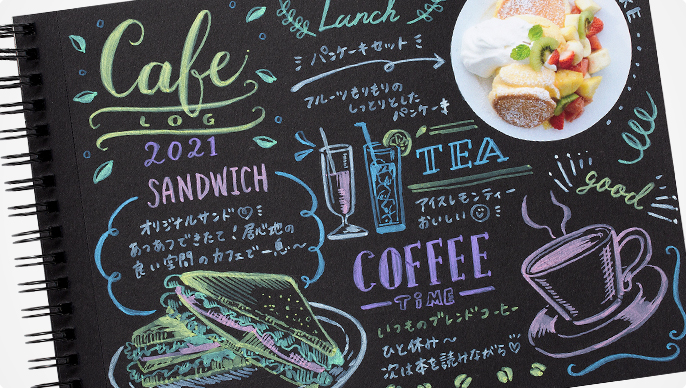 Cafe
LOG
2021
Lunch
パンケーキセット
フルーツもりもりの
しっとりとした
パンケーキ
TEA
アイスレモンティー
おいしい
good
SANDWICH
オリジナルサンド
あつあつできたて！居心地の
良い空間のカフェで一息〜
COFFEE
TiME
いつものブレンドコーヒー
ひと休み〜
次は本を読みながら